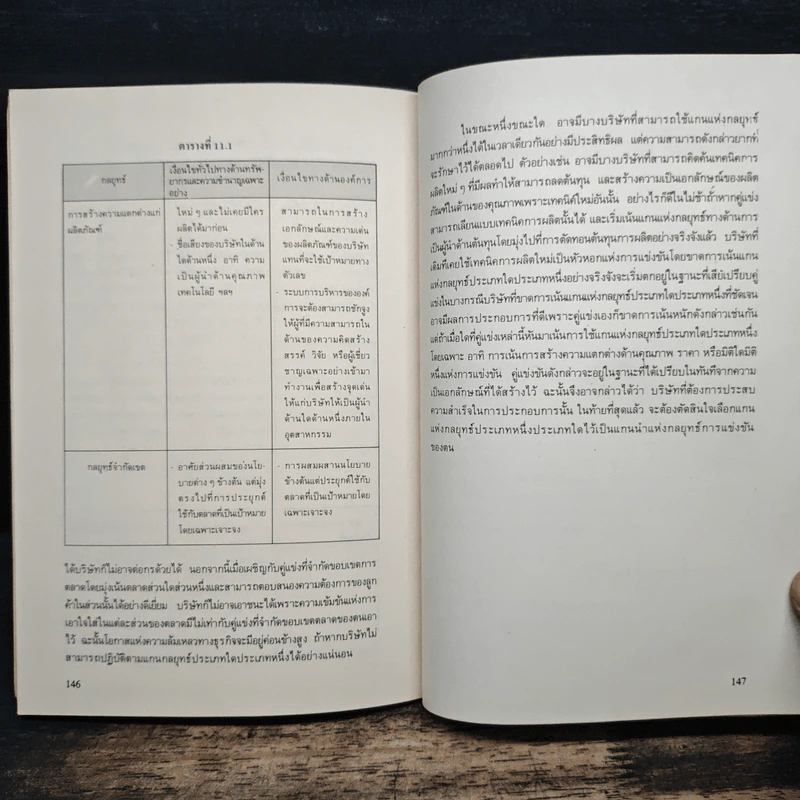 ตารางที่ 11.1
กลยุทธ์
เงื่อนไขทั่วไปทางด้านทรัพ-
ยากรและความชำนาญเฉพาะ
อย่าง
เงื่อนไขทางด้านองค์การ
การสร้างความแตกต่างแก่
ผลิตภัณฑ์
ใหม่ ๆ และไม่เคยมีใคร
ผลิตได้มาก่อน
- ชื่อเสียงของบริษัทในด้าน
ใดด้านหนึ่ง อาทิ ความ
เป็นผู้นำด้านคุณภาพ
เทคโนโลยี ฯลฯ
สามารถในการสร้าง
เอกลักษณ์และความเด่น
ของผลิตภัณฑ์ของบริษัท
แทนที่จะใช้เป้าหมายทาง
ตัวเลข
- ระบบการบริหารขององค์
การจะต้องสามารถชักจูง
ให้ผู้ที่มีความสามารถใน
ด้านของความคิดสร้าง
สรรค์ วิจัย หรือผู้เชี่ยว
ชาญเฉพาะอย่างเข้ามา
ทำงานเพื่อสร้างจุดเด่น
ให้แก่บริษัทให้เป็นผู้นำ
ด้านใดด้านหนึ่งภายใน
อุตสาหกรรม
กลยุทธ์จำกัดเขต
- อาศัยส่วนผสมของนโย-
บายต่าง ๆ ข้างต้น แต่มุ่ง
ตรงไปที่การประยุกต์
ใช้กับตลาดที่เป็นเป้าหมาย
โดยเฉพาะเจาะจง
- การผสมผสานนโยบาย
ข้างต้นแต่ประยุกต์ใช้กับ
ตลาดที่เป็นเป้าหมายโดย
เฉพาะเจาะจง
ได้บริษัทก็ไม่อาจต่อกรด้วยได้ นอกจากนี้เมื่อเผชิญกับคู่แข่งที่จำกัดขอบเขตการ
ตลาดโดยมุ่งเน้นตลาดส่วนใดส่วนหนึ่งและสามารถตอบสนองความต้องการของลูก
ค้าในส่วนนั้นได้อย่างดีเยี่ยม บริษัทก็ไม่อาจเอาชนะได้เพราะความเข้มข้นแห่งการ
เอาใจใส่ในแต่ละส่วนของตลาดมีไม่เท่ากับคู่แข่งที่จำกัดขอบเขตตลาดของตนเอา
ไว้ ฉะนั้นโอกาสแห่งความล้มเหลวทางธุรกิจจะมีอยู่ค่อนข้างสูง ถ้าหากบริษัทไม่
สามารถปฏิบัติตามแกนกลยุทธ์ประเภทใดประเภทหนึ่งได้อย่างแน่นอน
146
ในขณะหนึ่งขณะใด อาจมีบางบริษัทที่สามารถใช้แกนแห่งกลยุทธ์
มากกว่าหนึ่งได้ในเวลาเดียวกันอย่างมีประสิทธิผล แต่ความสามารถดังกล่าวยากที่
จะรักษาไว้ได้ตลอดไป ตัวอย่างเช่น อาจมีบางบริษัทที่สามารถคิดค้นเทคนิคการ
ผลิตใหม่ ๆ ที่มีผลทำให้สามารถลดต้นทุน และสร้างความเป็นเอกลักษณ์ของผลิต
ภัณฑ์ในด้านของคุณภาพเพราะเทคนิคใหม่อันนั้น อย่างไรก็ดีในไม่ช้าถ้าหากคู่แข่ง
สามารถเลียนแบบเทคนิคการผลิตนั้นได้ และเริ่มเน้นแกนแห่งกลยุทธ์ทางด้านการ
เป็นผู้นำด้านต้นทุนโดยมุ่งไปที่การตัดทอนต้นทุนการผลิตอย่างจริงจังแล้ว บริษัทที่
เดิมเคยใช้เทคนิคการผลิตใหม่เป็นหัวหอกแห่งการแข่งขันโดยขาดการเน้นแกน
แห่งกลยุทธ์ประเภทใดประเภทหนึ่งอย่างจริงจังจะเริ่มตกอยู่ในฐานะที่เสียเปรียบคู่
แข่งในบางกรณีบริษัทที่ขาดการเน้นแกนแห่งกลยุทธ์ประเภทใดประเภทหนึ่งที่ชัดเจน
อาจมีผลการประกอบการที่ดีเพราะคู่แข่งเองก็ขาดการเน้นหนักดังกล่าวเช่นกัน
แต่ถ้าเมื่อใดที่คู่แข่งเหล่านี้หันมาเน้นการใช้แกนแห่งกลยุทธ์ประเภทใดประเภทหนึ่ง
โดยเฉพาะ อาทิ การเน้นการสร้างความแตกต่างด้านคุณภาพ ราคา หรือมิติใดมิติ
หนึ่งแห่งการแข่งขัน คู่แข่งขันดังกล่าวจะอยู่ในฐานะที่ได้เปรียบในทันทีจากความ
เป็นเอกลักษณ์ที่ได้สร้างไว้ ฉะนั้นจึงอาจกล่าวได้ว่า บริษัทที่ต้องการประสบ
ความสำเร็จในการประกอบการนั้น ในท้ายที่สุดแล้ว จะต้องตัดสินใจเลือกแกน
แห่งกลยุทธ์ประเภทหนึ่งประเภทใดไว้เป็นแกนนำแห่งกลยุทธ์การแข่งขัน
ของตน
147